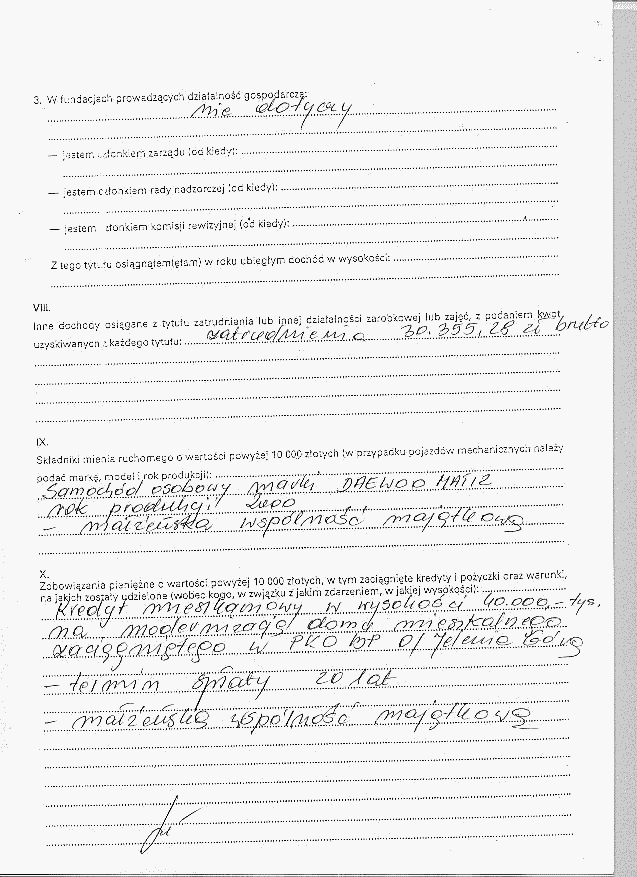 3. W fundacjach prowadzących działalność gospodarczą:
nie dotyczy
— jestem członkiem zarządu (od kiedy):
— jestem członkiem rady nadzorczej (od kiedy):
— jestem członkiem komisji rewizyjnej (od kiedy):
Z tego tytułu osiągnąłem(ęłam) w roku ubiegłym dochód w wysokości:
VIII.
Inne dochody osiągane z tytułu zatrudnienia lub innej działalności zarobkowej lub zajęć, z podaniem kwot
uzyskiwanych z każdego tytułu: zatrudnienia 30.395,28 zł brutto
IX.
Składniki mienia ruchomego o wartości powyżej 10 000 złotych (w przypadku pojazdów mechanicznych należy
podać markę, model i rok produkcji):
Samochód osobowy marki DAEWOO MATIZ
rok produkcji 2000
– małżeńska wspólność majątkowa
X.
Zobowiązania pieniężne o wartości powyżej 10 000 złotych, w tym zaciągnięte kredyty i pożyczki oraz warunki,
na jakich zostały udzielone (wobec kogo, w związku z jakim zdarzeniem, w jakiej wysokości):
Kredyt mieszkaniowy w wysokości 40.000,- tys.
na modernizację domu mieszkalnego
zaciągniętego w PKO BP O/Jelenia
– termin spłaty 20 lat
– małżeńska wspólność majątkowa